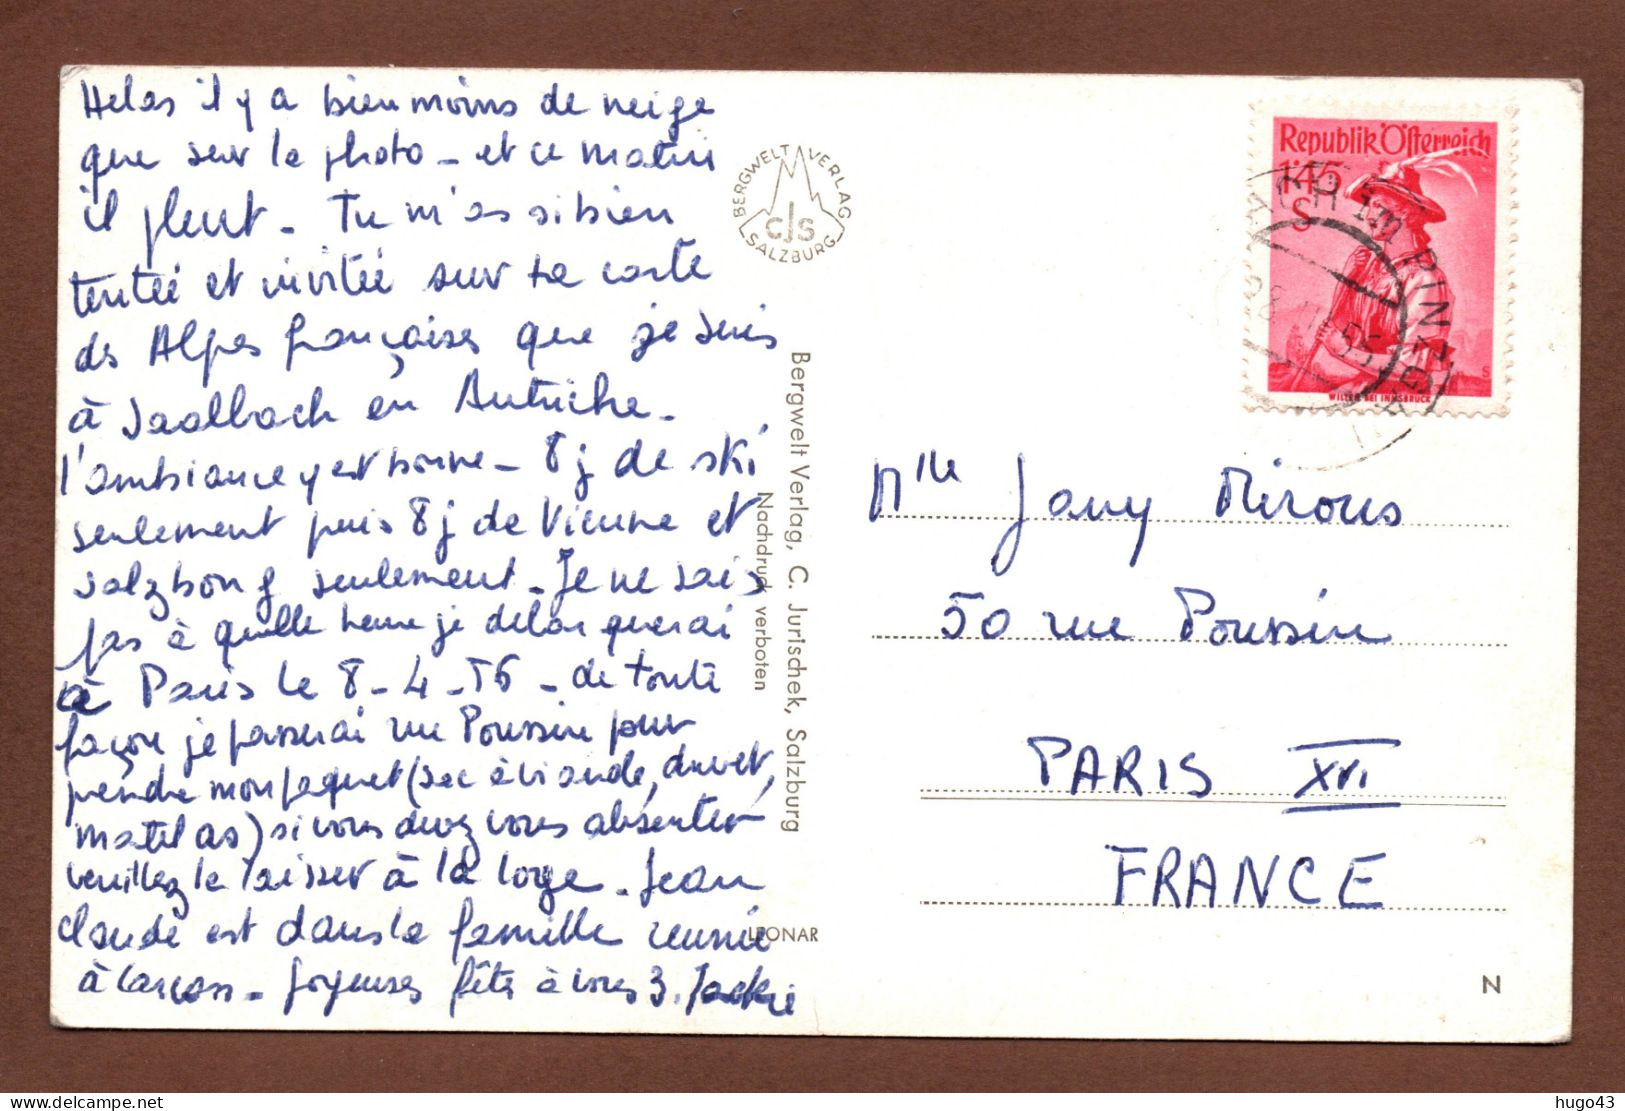 Helas il y a bien moins de neige
que sur la photo - et ce matin
il pleut - Tu m'as si bien
tentée et invitée sur ta carte
des Alpes françaises que je suis
à Saalbach en Autriche -
l'ambiance y est bonne - 8 j de ski
seulement puis 8 j de Vienne et
Salzbourg seulement - Je ne sais
pas à quelle heure je débarquerai
à Paris le 8-4-56 - de toute
façon je passerai rue Poussin pour
prendre mon paquet (sac à viande, duvet,
matelas) si vous devez vous absenter
veuillez le laisser à la loge - Jean
Claude est dans la famille réunie
à - Joyeuses fêtes à vous 3. Jackie
BERGWELT VERLAG
cJs
SALZBURG
Bergwelt Verlag, C. Jurischek, Salzburg
Nachdruck verboten
LEONAR
Republik Österreich
1'45
S
WILTEN BEI INNSBRUCK
Mlle Jany Mirous
50 rue Poussin
PARIS XVI
FRANCE
N
hugo43